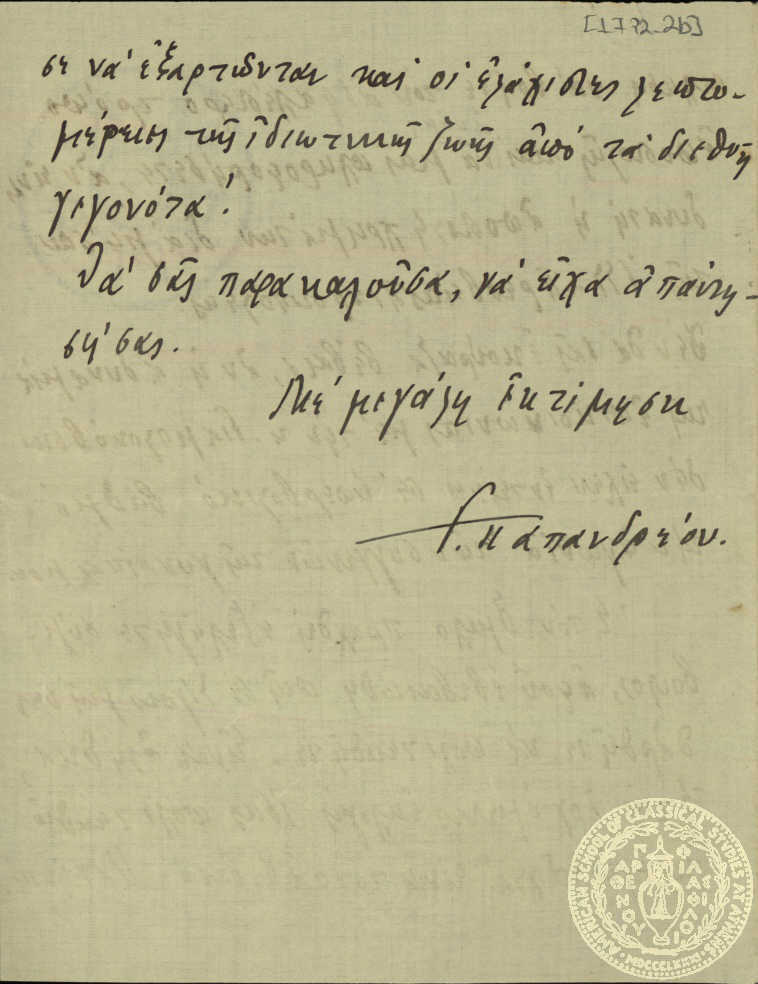 [1772-2b]
σε νά ἐξαρτῶνται καί οἱ ἐλάχιστες λεπτο-
μέρειες τῆς ἰδιωτικῆς ζωῆς ἀπό τά διεθνῆ
γεγονότα!
Θά σᾶς παρακαλοῦσα, νά εἶχα ἀπάντη-
σή σας.
Μέ μεγάλη ἐκτίμηση
Γ. Παπανδρέου.
AMERICAN SCHOOL OF CLASSICAL STUDIES AT ATHENS
ΠΑΡΘΕΝΟΥ ΦΙΛΑΣ ΦΙΛΟΙ
MDCCCLXXXI